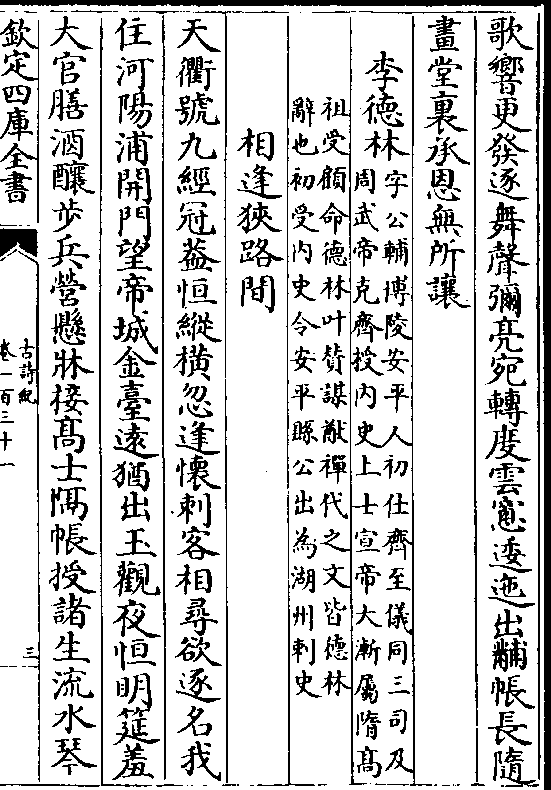 歌響更發逐舞聲彌亮宛轉度雲窻逶迤出黼帳長隨
畫堂裏承恩無所讓
李德林字公輔博陵安平人初仕齊至儀同三司及
周武帝克齊授内史上士宣帝大漸屬隋髙
祖受顧命德林叶賛謀猷禪代之文皆德林
辭也初受内史令安平縣公出為湖州刺史
相逢狹路間
天衢號九經冠葢恒縱横忽逢懷刺客相尋欲逐名我
住河陽浦開門望帝城金臺逺猶出玉觀夜恒明筵羞
大官膳酒釀步兵營懸牀接髙士隔帳授諸生流水琴
欽定四庫全書
古詩紀
卷一百三十一
三